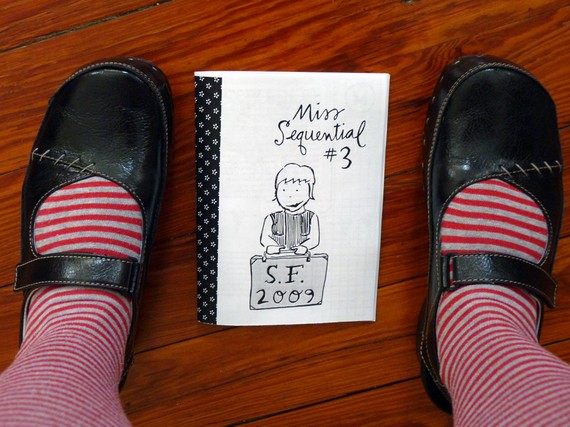 Miss
Sequential
#3
S.F.
2009